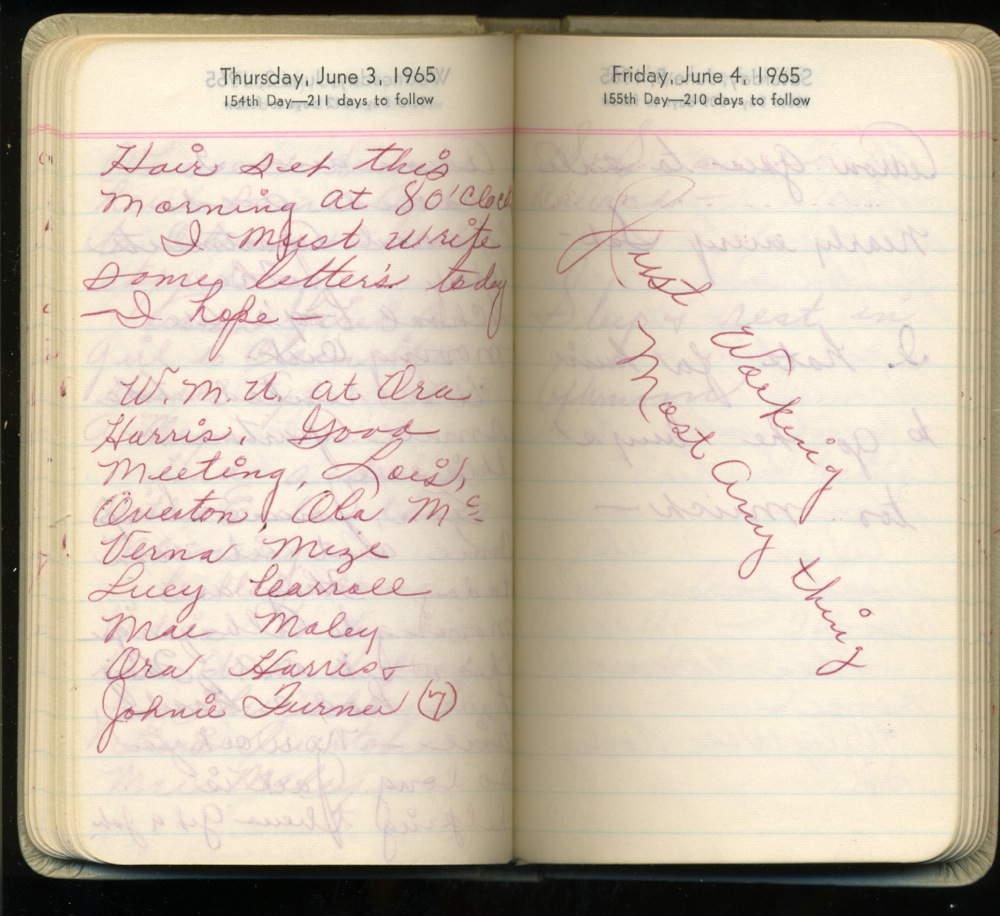 Thursday, June 3, 1965
154th Day—211 days to follow
Hair set this
Morning at 8 O'Clock
I Must write
some letter's today
— I hope —
W. M. U. at Ora
Harris. Good
Meeting, Lois,
Overton, Ola Mc
Verna Mize
Lucy Carroll
Mae Maley
Ora Harris &
Johnie Turner (7)
Friday, June 4, 1965
155th Day—210 days to follow
Just Working
Most Any thing